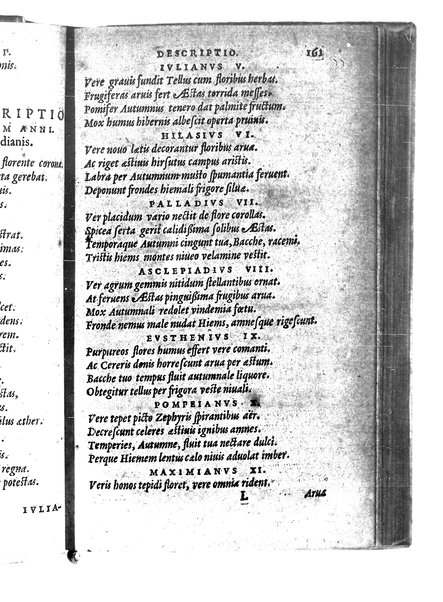 r.
nis.
RIPTIO
M ANNI.
dianis.
florente corona
ta gerebat.
is.
strat.
imas:
tes.
cet.
dens:
rem.
ctit.
stas,
ilus æther.
t.
regna.
potestas.
IVLIA-
DESCRIPTIO. 161
IVLIANVS V.
Vere grauis fundit Tellus cum floribus herbas.
Frugiferas aruis fert Æstas torrida messes.
Pomifer Autumnus tenero dat palmite fructum.
Mox humus hibernis albescit operta pruinis.
HILASIVS VI.
Vere nouo lætis decorantur floribus arua.
Ac riget æstiuis hirsutus campus aristis.
Labra per Autumnum musto spumantia feruent.
Deponunt frondes hiemali frigore siluæ.
PALLADIVS VII.
Ver placidum vario nectit de flore corollas.
Spicea serta gerit calidißima solibus Æstas.
Temporaque Autumni cingunt tua, Bacche, racemi.
Tristis hiems montes niueo velamine vestit.
ASCLEPIADIVS VIII.
Ver agrum gemmis nitidum stellantibus ornat.
At feruens Æstas pinguißima frugibus arua.
Mox Autumnali redolet vindemia fœtu.
Fronde nemus male nudat Hiems, amnesque rigescunt.
EVSTHENIVS IX.
Purpureos flores humus effert vere comanti.
Ac Cereris donis horrescunt arua per æstum.
Bacche tuo tempus fluit autumnale liquore.
Obtegitur tellus per frigora veste niuali.
POMPEIANVS X.
Vere tepet picto Zephyris spirantibus aër.
Decrescunt celeres æstiuis ignibus amnes.
Temperies, Autumne, fluit tua nectare dulci.
Perque Hiemem lentus cælo niuis aduolat imber.
MAXIMIANVS XI.
Veris honos tepidi floret, vere omnia rident.
L Arua